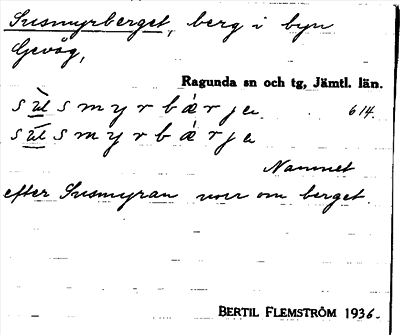 Susmyrberget, berg i byn
Gevåg,
Ragunda sn och tg, Jämtl. län.
614.
Namnet
efter Susmyran norr om berget.
BERTIL FLEMSTRÖM 1936.